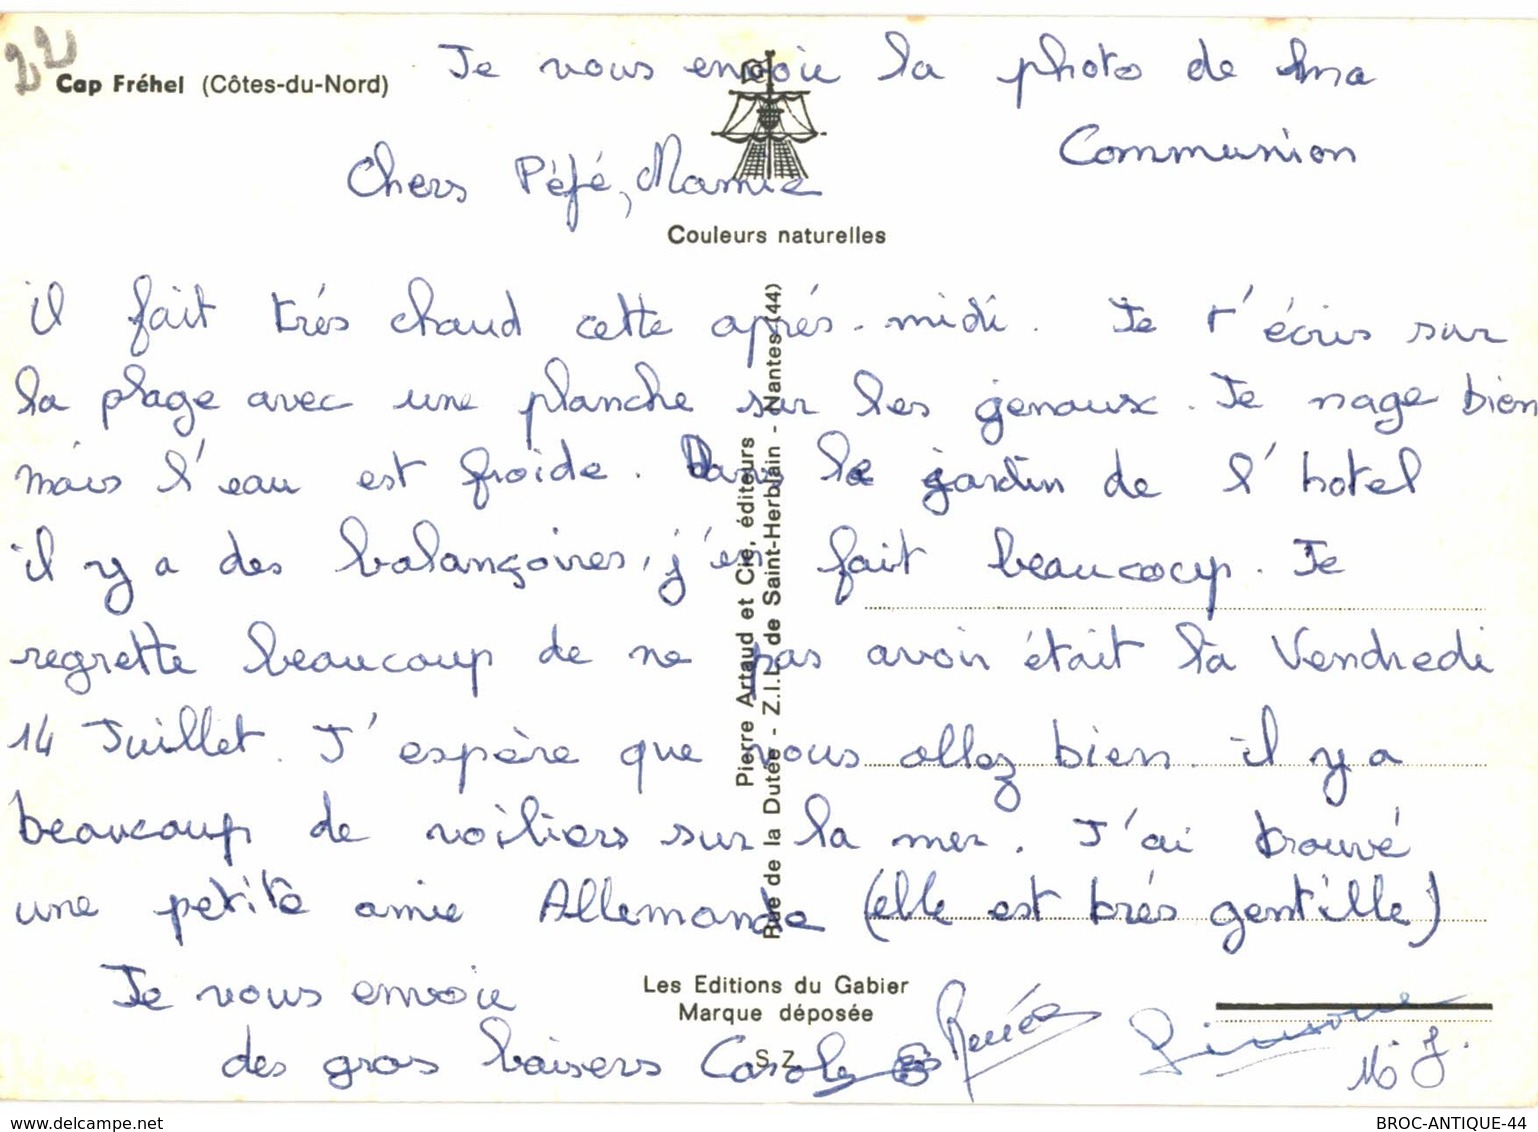 22
Cap Fréhel (Côtes-du-Nord)
Je vous envoie la photo de ma
Communion
Chers Péfé, Mamie
Couleurs naturelles
il fait trés chaud cette aprés-midi. Je t'écris sur
la plage avec une planche sur les genoux. Je nage bien
mais l'eau est froide. Dans le jardin de l'hotel
il y a des balançoires, j'en fait beaucocup. Je
regrette beaucoup de ne pas avoir était là Vendredi
14 Juillet. J'espère que vous allez bien. il y a
beaucoup de voiliers sur la mer. J'ai trouvé
une petite amie Allemande (elle est trés gentille)
Je vous envoie
des gros baisers Carole Renée Simone
M. J.
Pierre Artaud et Cie, éditeurs
Rue de la Dutée - Z.I.L. de Saint-Herblain - Nantes (44)
Les Editions du Gabier
Marque déposée
S. Z.
delcampe.net
BROC-ANTIQUE-44